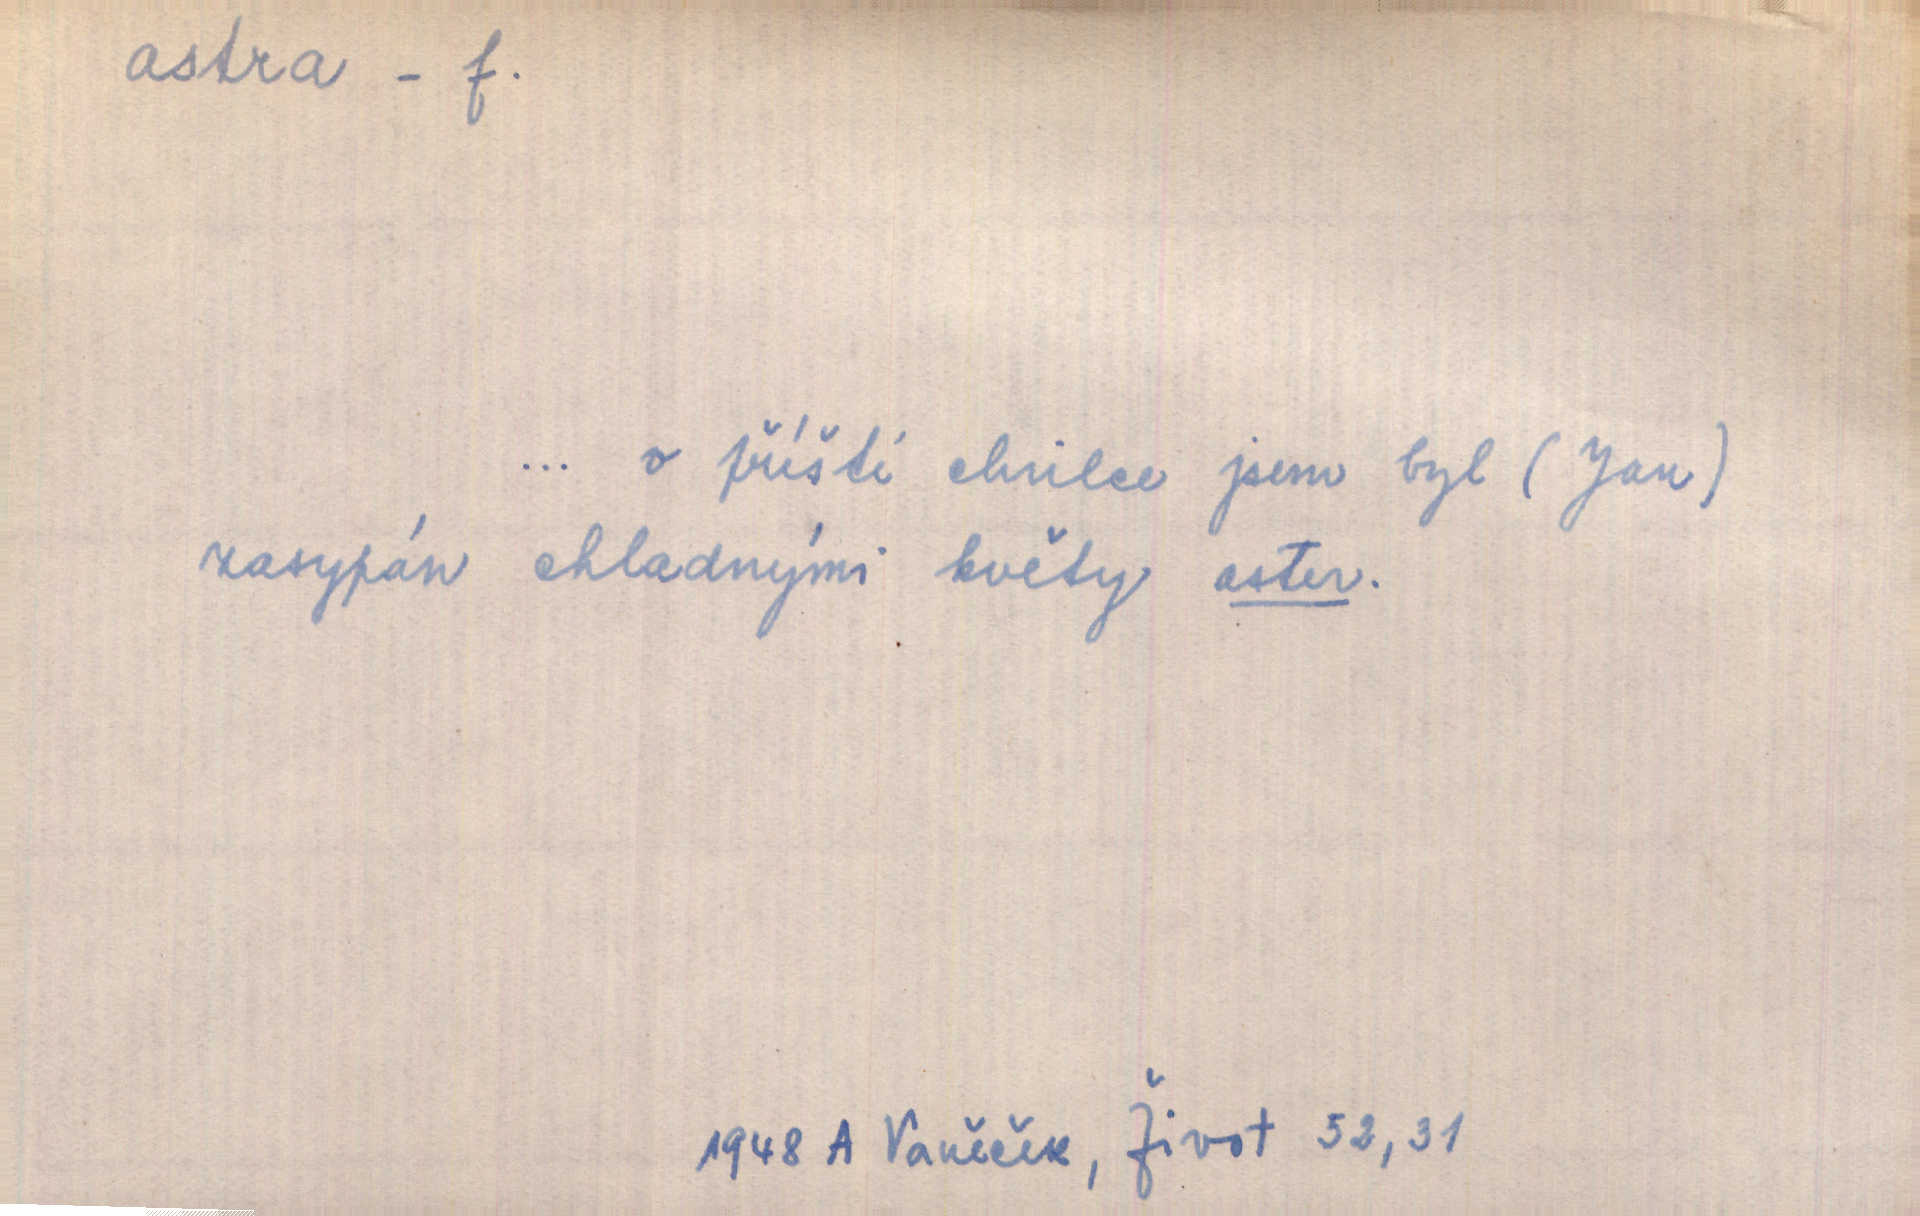 astra - f.
... v příští chvilce jsem byl (Jan)
zasypán chladnými květy aster.
1948 A Vaněček, Život 52, 31